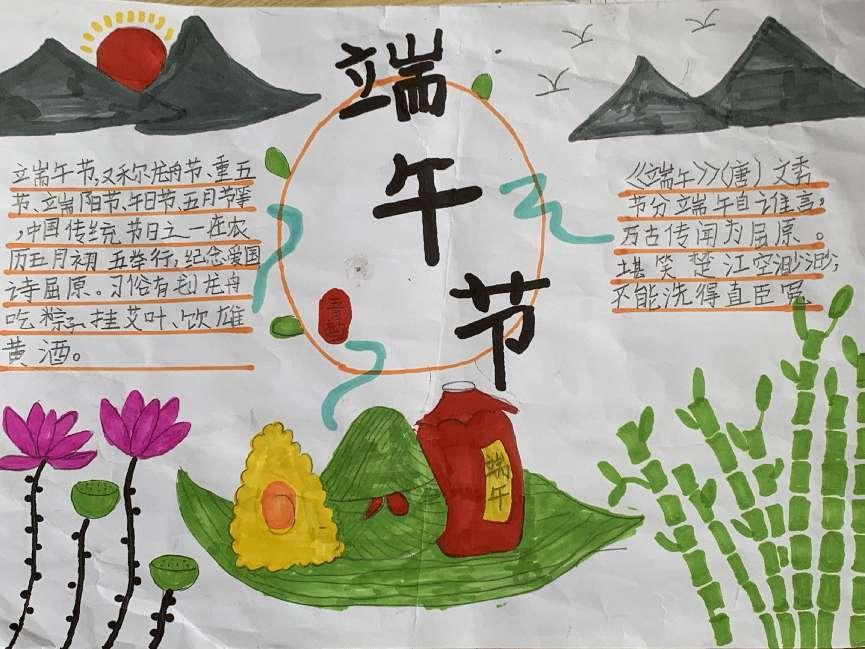 端
午
节
立端午节,又称尔龙舟节、重五
节、立端阳节、午日节、五月节等
,中国传统节日之一在农
历五月初五举行,纪念爱国
诗屈原。习俗有划龙舟
吃粽子、挂艾叶、饮雄
黄酒。
《端午》(唐)文秀
节分端午自讠隹言,
万古传闻为屈原。
堪笑楚江空渺渺,
不能洗得直臣冤
端
午